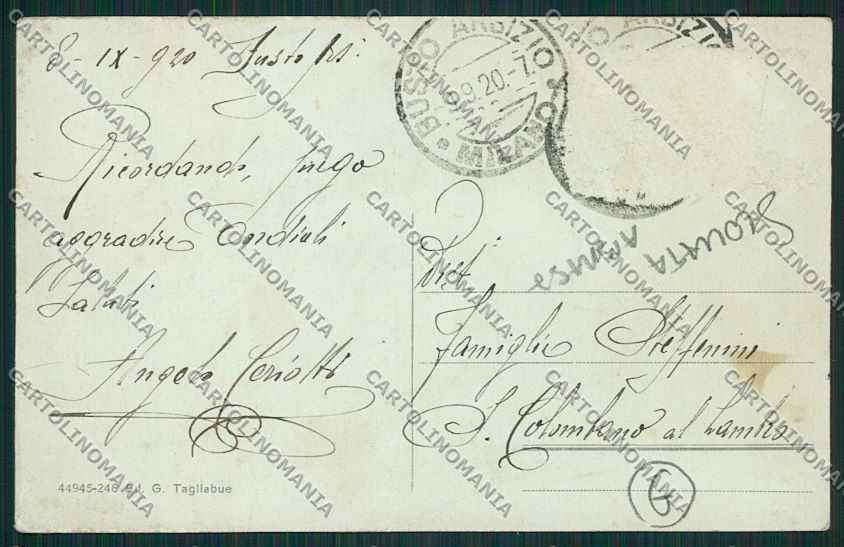 8-IX-920 Busto Ars.
Ricordando, prego
aggradire Cordiali
Saluti
Angelo Ceriotti
44945-246 Ed. G. Tagliabue
BUSTO ARSIZIO
9.20.-7
MILANO
ARSIZIO
Famiglia Steffenini
S. Colombano al Lambro
6
CARTOLINOMANIA